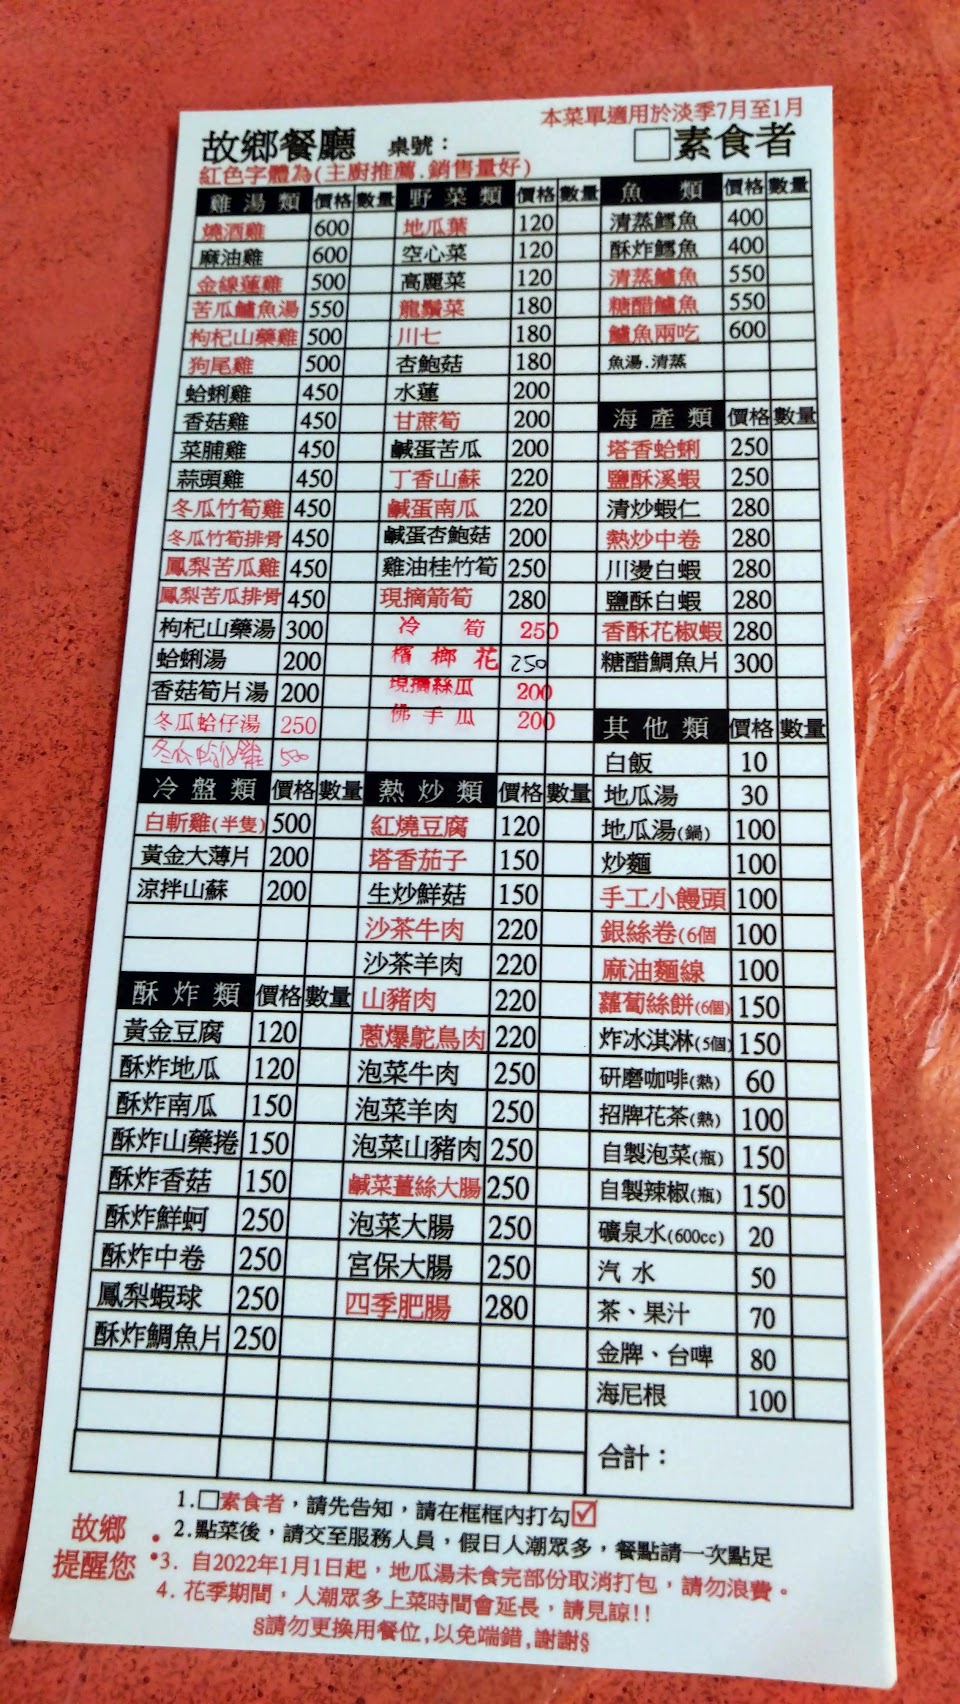 本菜單適用於淡季7月至1月
故鄉餐廳 桌號：_____ □素食者
紅色字體為(主廚推薦.銷售量好)
雞湯類 價格 數量
燒酒雞 600
麻油雞 600
金線蓮雞 500
苦瓜鱸魚湯 550
枸杞山藥雞 500
狗尾雞 500
蛤蜊雞 450
香菇雞 450
菜脯雞 450
蒜頭雞 450
冬瓜竹筍雞 450
冬瓜竹筍排骨 450
鳳梨苦瓜雞 450
鳳梨苦瓜排骨 450
枸杞山藥湯 300
蛤蜊湯 200
香菇筍片湯 200
冬瓜蛤仔湯 250
冬瓜蛤仔雞 500
冷盤類 價格 數量
白斬雞(半隻) 500
黃金大薄片 200
涼拌山蘇 200
酥炸類 價格 數量
黃金豆腐 120
酥炸地瓜 120
酥炸南瓜 150
酥炸山藥捲 150
酥炸香菇 150
酥炸鮮蚵 250
酥炸中卷 250
鳳梨蝦球 250
酥炸鯛魚片 250
野菜類 價格 數量
地瓜葉 120
空心菜 120
高麗菜 120
龍鬚菜 180
川七 180
杏鮑菇 180
水蓮 200
甘蔗筍 200
鹹蛋苦瓜 200
丁香山蘇 220
鹹蛋南瓜 220
鹹蛋杏鮑菇 200
雞油桂竹筍 250
現摘箭筍 280
冷筍 250
檳榔花 250
現摘絲瓜 200
佛手瓜 200
熱炒類 價格 數量
紅燒豆腐 120
塔香茄子 150
生炒鮮菇 150
沙茶牛肉 220
沙茶羊肉 220
山豬肉 220
蔥爆鴕鳥肉 220
泡菜牛肉 250
泡菜羊肉 250
泡菜山豬肉 250
鹹菜薑絲大腸 250
泡菜大腸 250
宮保大腸 250
四季肥腸 280
魚類 價格 數量
清蒸鱈魚 400
酥炸鱈魚 400
清蒸鱸魚 550
糖醋鱸魚 550
鱸魚兩吃 600
魚湯.清蒸
海產類 價格 數量
塔香蛤蜊 250
鹽酥溪蝦 250
清炒蝦仁 280
熱炒中卷 280
川燙白蝦 280
鹽酥白蝦 280
香酥花椒蝦 280
糖醋鯛魚片 300
其他類 價格 數量
白飯 10
地瓜湯 30
地瓜湯(鍋) 100
炒麵 100
手工小饅頭 100
銀絲卷(6個 100
麻油麵線 100
蘿蔔絲餅(6個) 150
炸冰淇淋(5個) 150
研磨咖啡(熱) 60
招牌花茶(熱) 100
自製泡菜(瓶) 150
自製辣椒(瓶) 150
礦泉水(600cc) 20
汽水 50
茶、果汁 70
金牌、台啤 80
海尼根 100
合計：
故鄉
提醒您
1.□素食者，請先告知，請在框框內打勾☑
2.點菜後，請交至服務人員，假日人潮眾多，餐點請一次點足
3. 自2022年1月1日起，地瓜湯未食完部份取消打包，請勿浪費。
4. 花季期間，人潮眾多上菜時間會延長，請見諒!!
§請勿更換用餐位,以免端錯,謝謝§